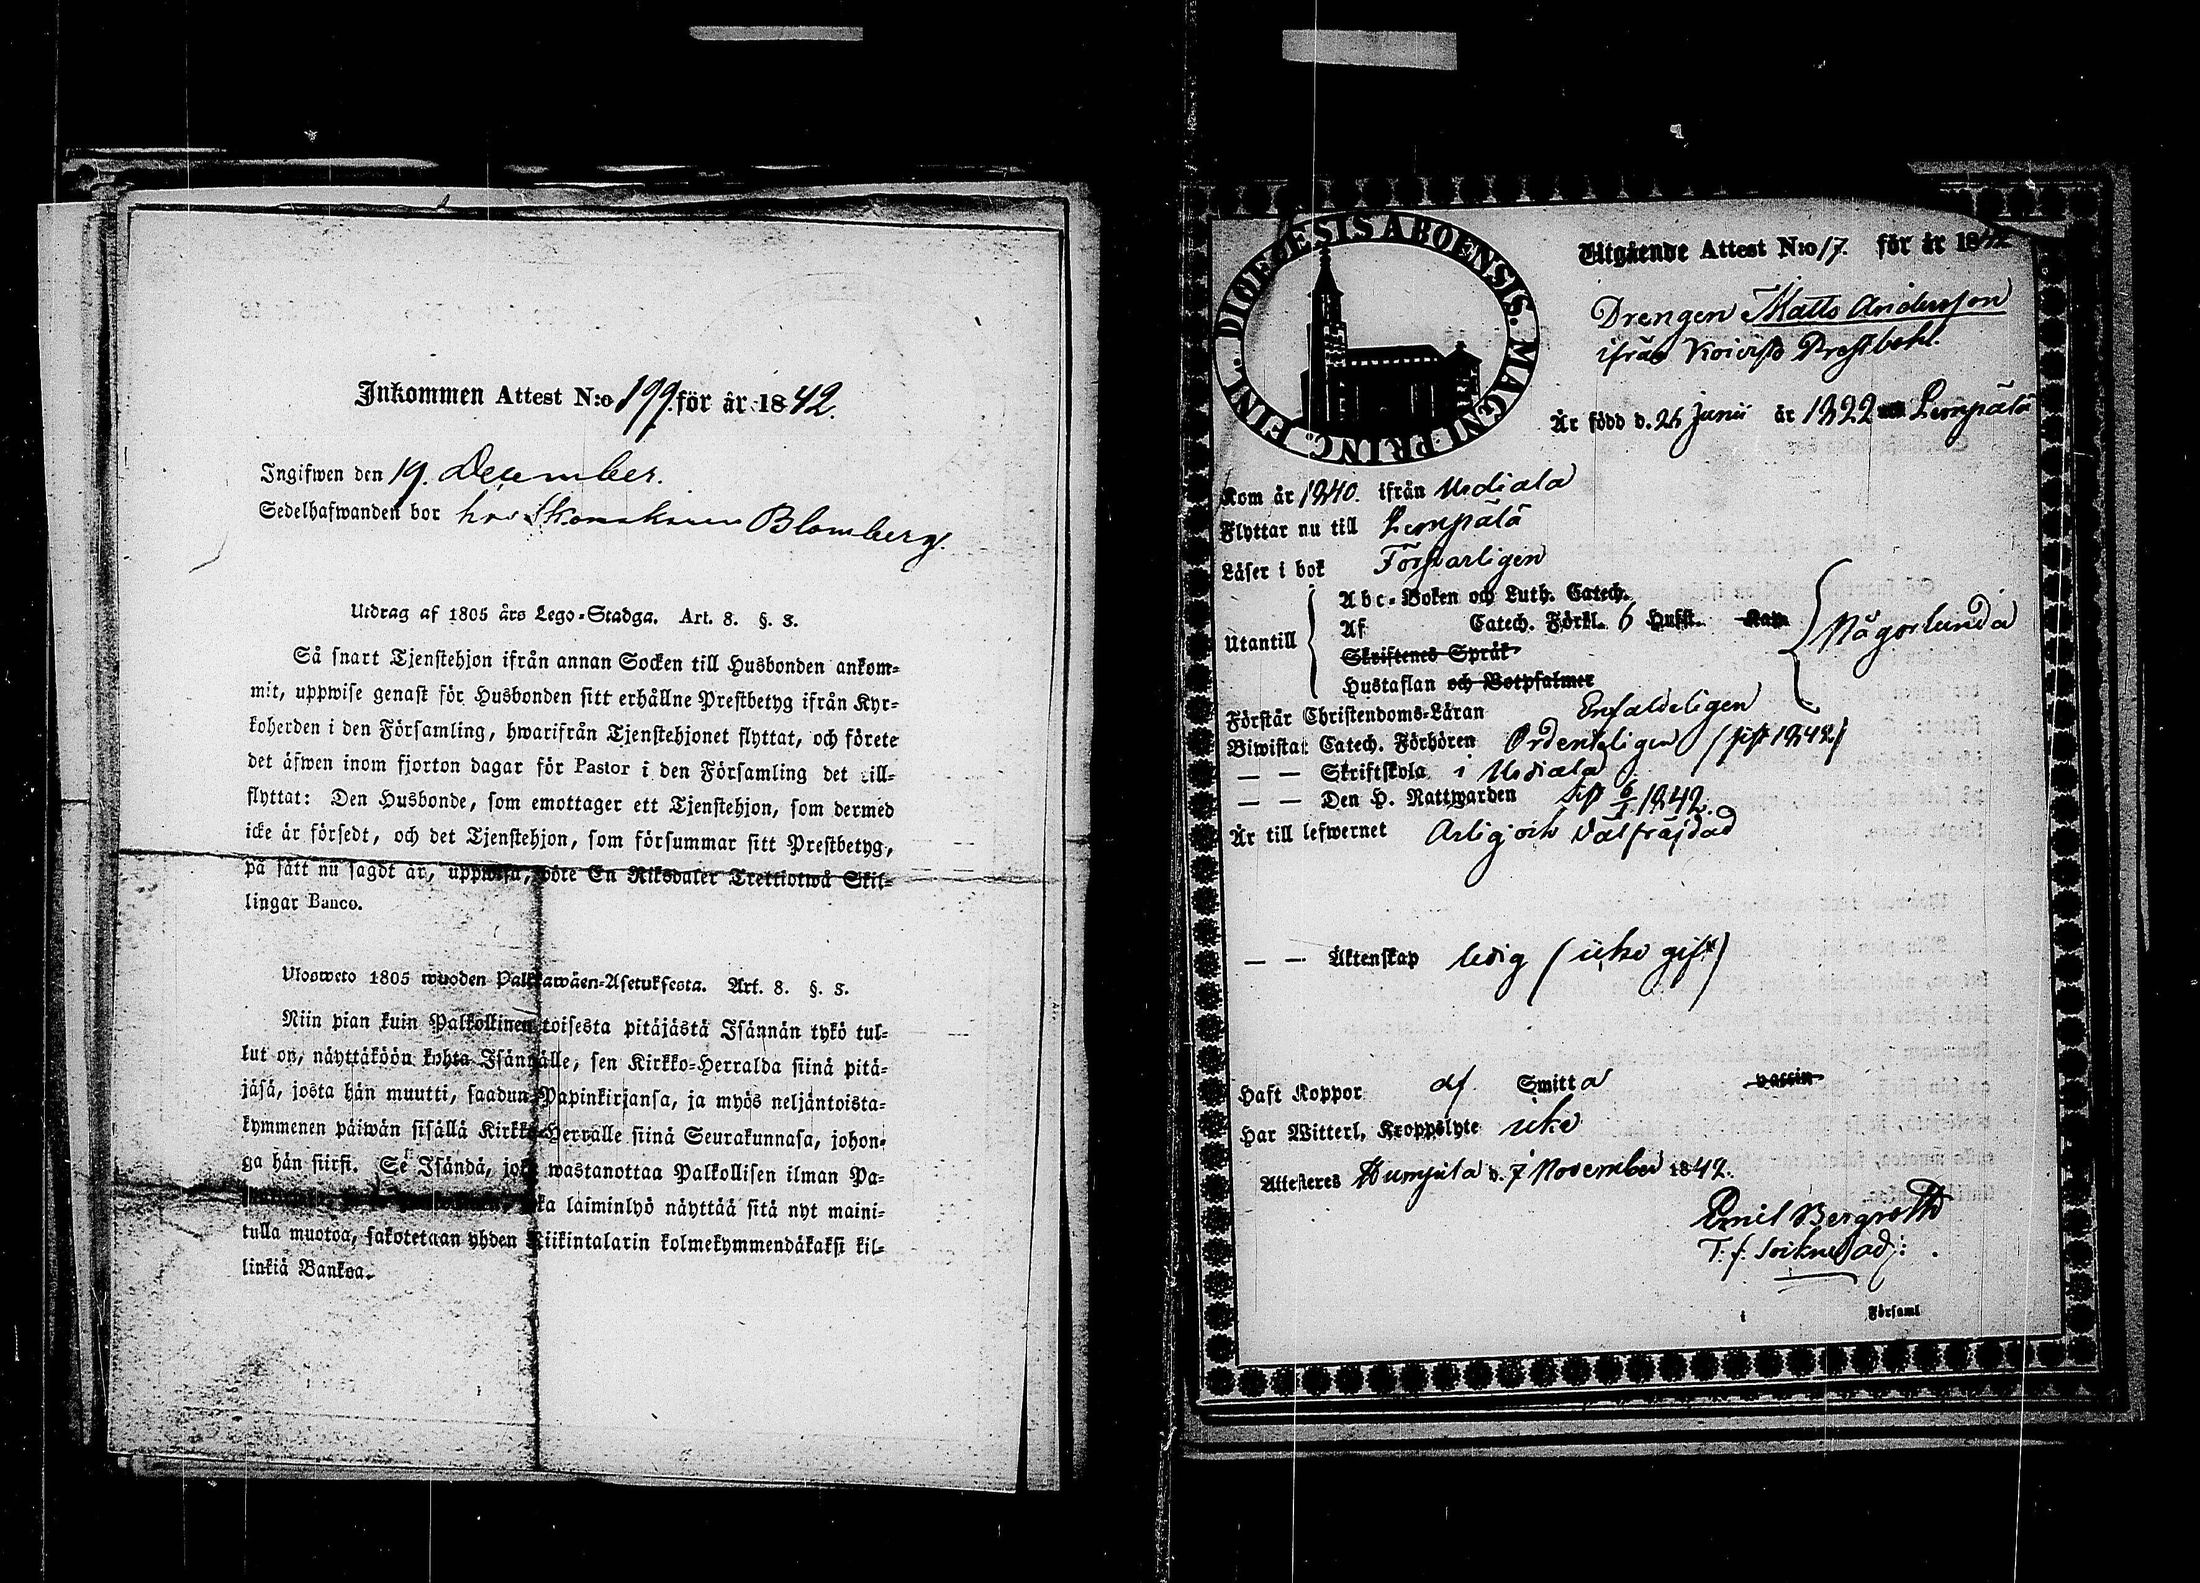 Inkommen Attest N:o 199. för år 1842.
Ingifwen den 19. December.
Sedelhafwanden bor hos Skomakaren Blomberg.
Utdrag af 1805 års Lego-Stadga. Art. 8. §. 3.
Så snart Tjenstehjon ifrån annan Socken till Husbonden ankom-
mit, uppwise genast för Husbonden sitt erhållne Prestbetyg ifrån Kyr-
koherden i den Församling, hwarifrån Tjenstehjonet flyttat, och förete
det äfwen inom fjorton dagar för Pastor i den Församling det till-
flyttat: Den Husbonde, som emottager ett Tjenstehjon, som dermed
icke är försedt, och det Tjenstehjon, som försummar sitt Prestbetyg,
på sätt nu sagdt är, uppwisa, böte En Riksdaler Trettiotwå Skil-
lingar Banco.
Ulosweto 1805 wuoden Palkkawäen-Asetuksesta. Art. 8. §. 3.
Niin pian kuin Palkollinen toisesta pitäjästä Isännän tykö tul-
lut on, näyttäköön kohta Isännälle, sen Kirkko-Herralda siinä pitä-
jäsä, josta hän muutti, saadun Papinkirjansa, ja myös neljäntoista-
kymmenen päiwän sisällä Kirkko-Herralle siinä Seurakunnasa, johon-
ga hän siirsi. Se Isändä, joka wastanottaa Palkollisen ilman Pa-
laiminlyö näyttää sitä nyt maini-
tulla muotoa, sakotetaan yhden Riikintalarin kolmekymmendäkaksi kil-
linkiä Bankoa.
DIOECESIS ABOENSIS. MAGNI PRINC. FINL.
Utgående Attest N:o 17. för år 1842
Drengen Matts Andersson
ifrån Koivisto Prestbohl.
Är född d. 26 Junii år 1822 Lempälä
Kom år 1840. ifrån Urdiala
Flyttar nu till Lempälä
Läser i bok Försvarligen
Utantill
Abc-Boken och Luth. Catech.
Af Catech. Förkl. 6 Hufst. Kap.
Skriftenes Språk
Hustaflan och Botpsalmer
Någorlunda
Förstår Christendoms-Läran Enfaldeligen
Biwistat Catech. Förhören Ordenteligen (sist 1842)
— — Skriftskola i Urdiala
— — Den H. Nattwarden sist 6/1 1842.
Är till lefwernet Ärlig och Välfräjdad
— — Äktenskap ledig (icke gift)
Haft Koppor af Smitta vaccin
Har Witterl, Kroppslyte icke
Attesteres Humpila d. 7 November 1842.
Emil Bergroth
T. f. Sockne adj:
i Församl